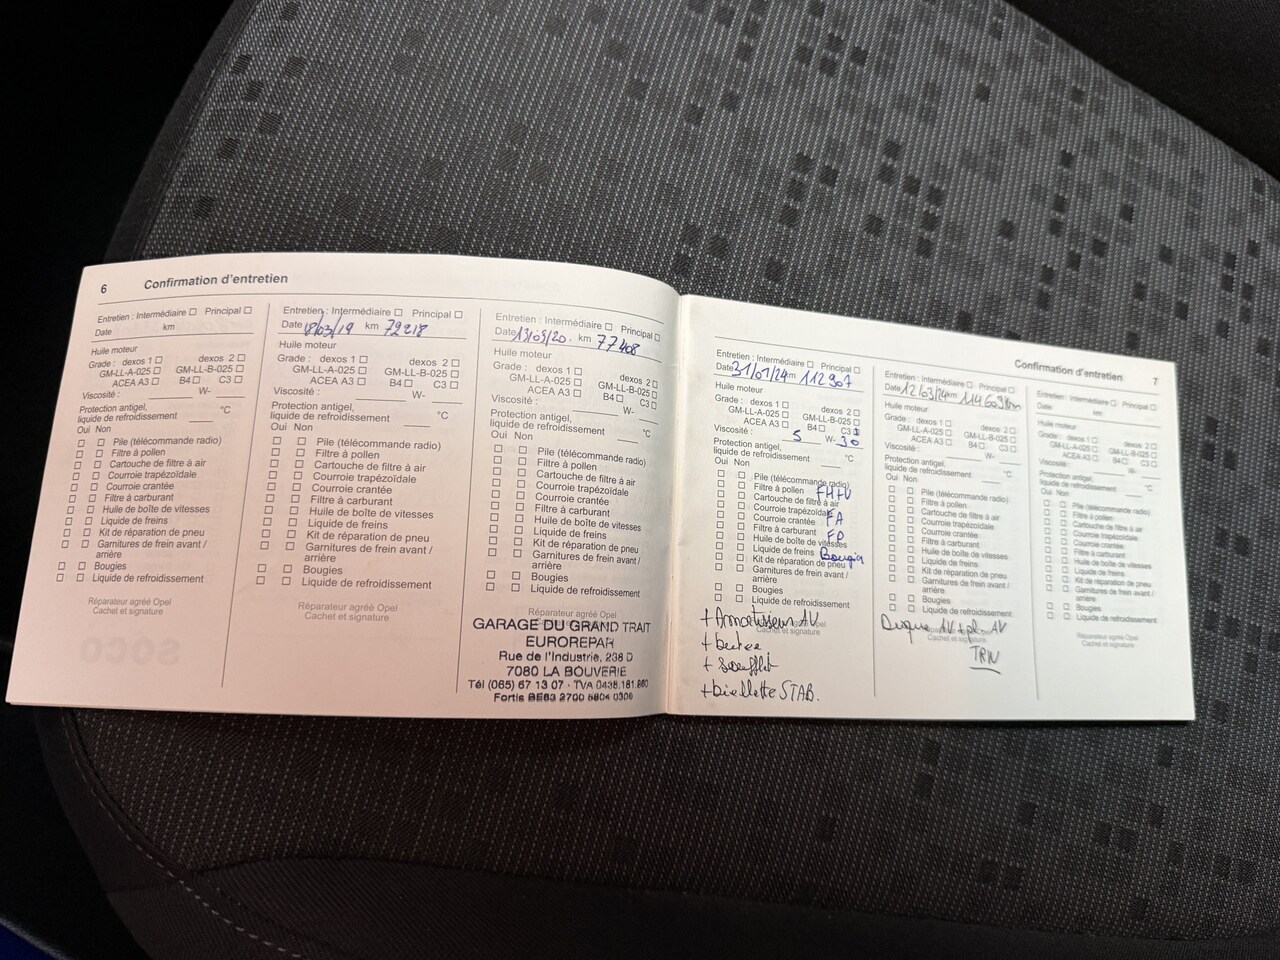 6 Confirmation d'entretien
Entretien : Intermédiaire ☐ Principal ☐
Date km
Huile moteur
Grade : dexos 1 ☐ dexos 2 ☐
GM-LL-A-025 ☐ GM-LL-B-025 ☐
ACEA A3 ☐ B4 ☐ C3 ☐
Viscosité : W-
Protection antigel,
liquide de refroidissement °C
Oui Non
☐ ☐ Pile (télécommande radio)
☐ ☐ Filtre à pollen
☐ ☐ Cartouche de filtre à air
☐ ☐ Courroie trapézoïdale
☐ ☐ Courroie crantée
☐ ☐ Filtre à carburant
☐ ☐ Huile de boîte de vitesses
☐ ☐ Liquide de freins
☐ ☐ Kit de réparation de pneu
☐ ☐ Garnitures de frein avant /
arrière
☐ ☐ Bougies
☐ ☐ Liquide de refroidissement
Réparateur agréé Opel
Cachet et signature
Entretien : Intermédiaire ☐ Principal ☐
Date 18/03/19 km 72218
Huile moteur
Grade : dexos 1 ☐ dexos 2 ☐
GM-LL-A-025 ☐ GM-LL-B-025 ☐
ACEA A3 ☐ B4 ☐ C3 ☐
Viscosité : W-
Protection antigel,
liquide de refroidissement °C
Oui Non
☐ ☐ Pile (télécommande radio)
☐ ☐ Filtre à pollen
☐ ☐ Cartouche de filtre à air
☐ ☐ Courroie trapézoïdale
☐ ☐ Courroie crantée
☐ ☐ Filtre à carburant
☐ ☐ Huile de boîte de vitesses
☐ ☐ Liquide de freins
☐ ☐ Kit de réparation de pneu
☐ ☐ Garnitures de frein avant /
arrière
☐ ☐ Bougies
☐ ☐ Liquide de refroidissement
Réparateur agréé Opel
Cachet et signature
Entretien : Intermédiaire ☐ Principal ☐
Date 13/05/20. km 77408
Huile moteur
Grade : dexos 1 ☐ dexos 2 ☐
GM-LL-A-025 ☐ GM-LL-B-025 ☐
ACEA A3 ☐ B4 ☐ C3 ☐
Viscosité : W-
Protection antigel,
liquide de refroidissement °C
Oui Non
☐ ☐ Pile (télécommande radio)
☐ ☐ Filtre à pollen
☐ ☐ Cartouche de filtre à air
☐ ☐ Courroie trapézoïdale
☐ ☐ Courroie crantée
☐ ☐ Filtre à carburant
☐ ☐ Huile de boîte de vitesses
☐ ☐ Liquide de freins
☐ ☐ Kit de réparation de pneu
☐ ☐ Garnitures de frein avant /
arrière
☐ ☐ Bougies
☐ ☐ Liquide de refroidissement
Réparateur agréé Opel
Cachet et signature
GARAGE DU GRAND TRAIT
EUROREPAR
Rue de l'Industrie, 238 D
7080 LA BOUVERIE
Tél (065) 67 13 07 - TVA 0438.181.860
Fortis BE63 2700 5804 0308
Confirmation d'entretien 7
Entretien : Intermédiaire ☐ Principal ☐
Date 31/01/24 km 112907
Huile moteur
Grade : dexos 1 ☐ dexos 2 ☐
GM-LL-A-025 ☐ GM-LL-B-025 ☐
ACEA A3 ☐ B4 ☐ C3
Viscosité : 5 W- 30
Protection antigel,
liquide de refroidissement °C
Oui Non
☐ ☐ Pile (télécommande radio)
☐ ☐ Filtre à pollen FH+V
☐ ☐ Cartouche de filtre à air
☐ ☐ Courroie trapézoïdale FA
☐ ☐ Courroie crantée
☐ ☐ Filtre à carburant FO
☐ ☐ Huile de boîte de vitesses
☐ ☐ Liquide de freins Bougie
☐ ☐ Kit de réparation de pneu
☐ ☐ Garnitures de frein avant /
arrière
☐ ☐ Bougies
☐ ☐ Liquide de refroidissement
+ Amortisseur AV
+ butée
+ soufflet
+ biellette STAB.
Entretien : Intermédiaire ☐ Principal ☐
Date 12/03/24 km 114603km
Huile moteur
Grade : dexos 1 ☐ dexos 2 ☐
GM-LL-A-025 ☐ GM-LL-B-025 ☐
ACEA A3 ☐ B4 ☐ C3 ☐
Viscosité : W-
Protection antigel,
liquide de refroidissement °C
Oui Non
☐ ☐ Pile (télécommande radio)
☐ ☐ Filtre à pollen
☐ ☐ Cartouche de filtre à air
☐ ☐ Courroie trapézoïdale
☐ ☐ Courroie crantée
☐ ☐ Filtre à carburant
☐ ☐ Huile de boîte de vitesses
☐ ☐ Liquide de freins
☐ ☐ Kit de réparation de pneu
☐ ☐ Garnitures de frein avant /
arrière
☐ ☐ Bougies
☐ ☐ Liquide de refroidissement
Disque AV + pl. AV
TRW
Entretien : Intermédiaire ☐ Principal ☐
Date km
Huile moteur
Grade : dexos 1 ☐ dexos 2 ☐
GM-LL-A-025 ☐ GM-LL-B-025 ☐
ACEA A3 ☐ B4 ☐ C3 ☐
Viscosité : W-
Protection antigel,
liquide de refroidissement °C
Oui Non
☐ ☐ Pile (télécommande radio)
☐ ☐ Filtre à pollen
☐ ☐ Cartouche de filtre à air
☐ ☐ Courroie trapézoïdale
☐ ☐ Courroie crantée
☐ ☐ Filtre à carburant
☐ ☐ Huile de boîte de vitesses
☐ ☐ Liquide de freins
☐ ☐ Kit de réparation de pneu
☐ ☐ Garnitures de frein avant /
arrière
☐ ☐ Bougies
☐ ☐ Liquide de refroidissement
Réparateur agréé Opel
Cachet et signature